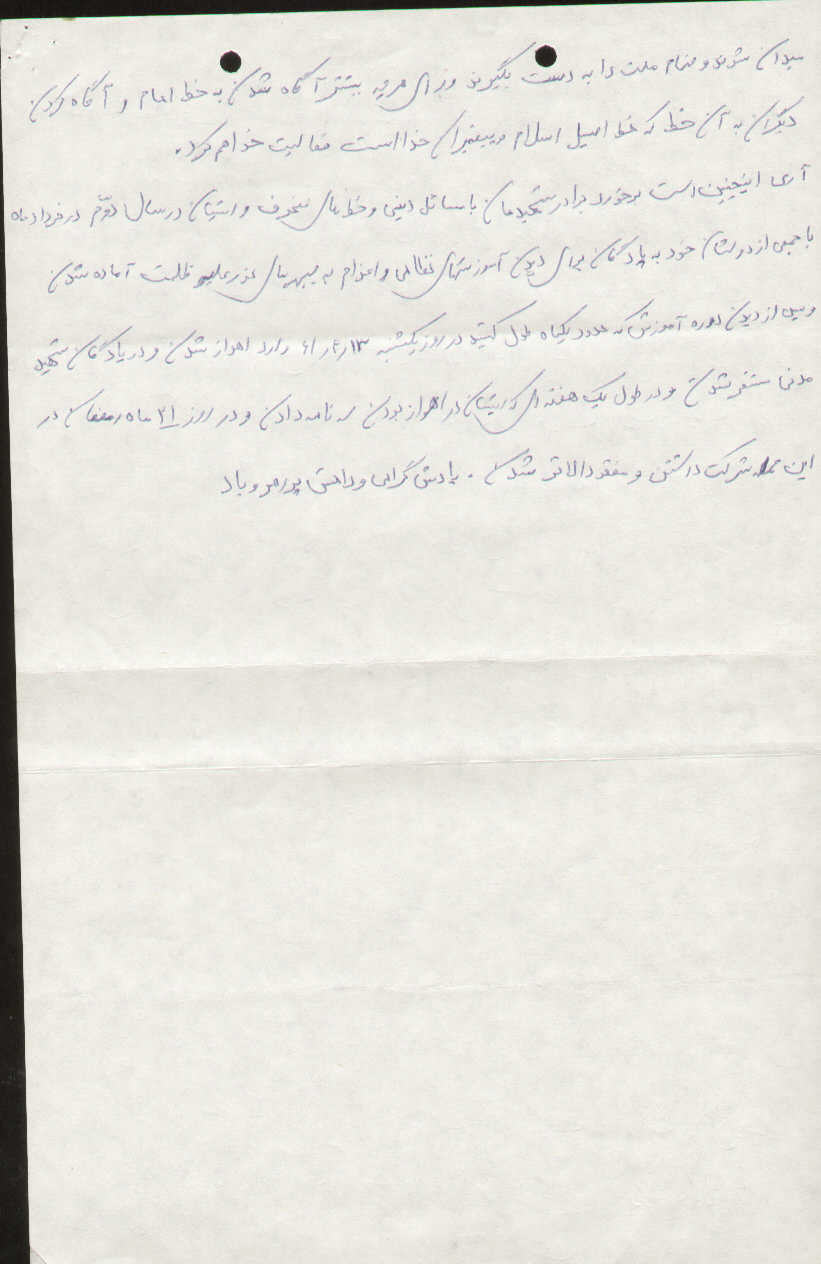 میدان شوند و زمام ملت را به دست بگیرند و برای هر چه بیشتر آگاه شدن به خط امام و آگاه کردن
دیگران به آن خط که خط اصیل اسلام و پیغمبران خدا است فعالیت خواهم کرد.
آری اینچنین است برخورد برادر شهیدمان با مسائل دینی و خط های منحرف و ایشان در سال دوّم در خرداد ماه
با جمعی از دوستان خود به پادگان برای دیدن آموزشهای نظامی و اعزام به جبهه های نور علیه ظلمت آماده شدن
و پس از دیدن دوره آموزش که حدود یکماه طول کشید در روز یکشنبه ۶۱/۴/۱۳ وارد اهواز شدن و در پادگان شهید
مدنی مستقر شدن و در طول یک هفته ای که ایشان در اهواز بودن سه نامه دادن و در روز ۲۱ ماه رمضان در
این حمله شرکت داشتن و مفقودالاثر شدن. یادش گرامی و راهش پر رهرو باد